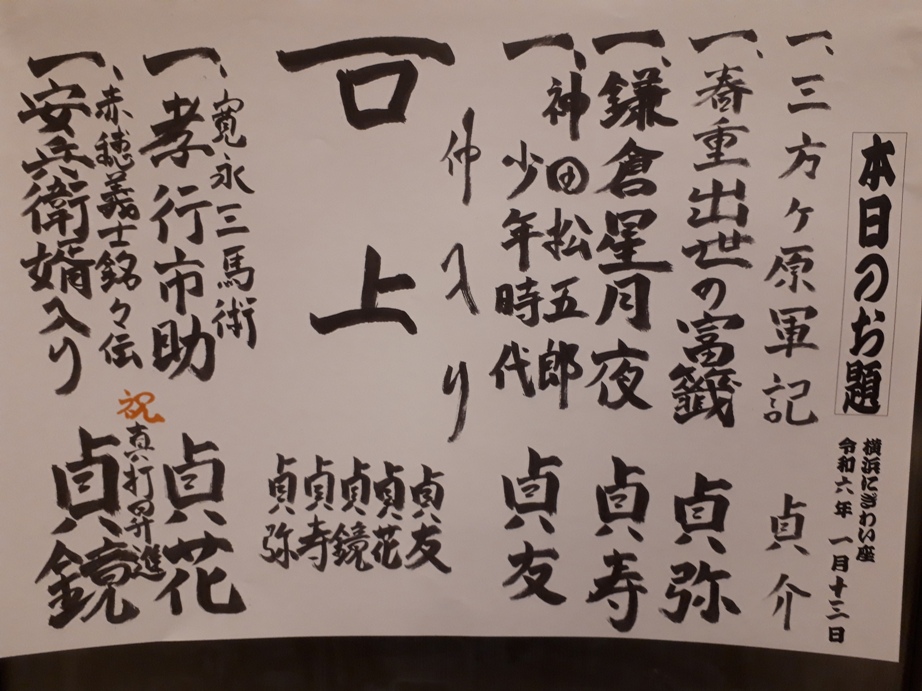 本日のお題
横浜にぎわい座
令和六年 一月十三日
一、三方ヶ原軍記 貞介
一、春重出世の富籤 貞弥
一、鎌倉星月夜 貞寿
一、神田松五郎
少年時代 貞友
仲入り
口上 貞友
貞花
貞鏡
貞寿
貞弥
寛永三馬術
一、孝行市助 貞花
赤穂義士銘々伝
一、安兵衛婿入り
祝 真打昇進
貞鏡